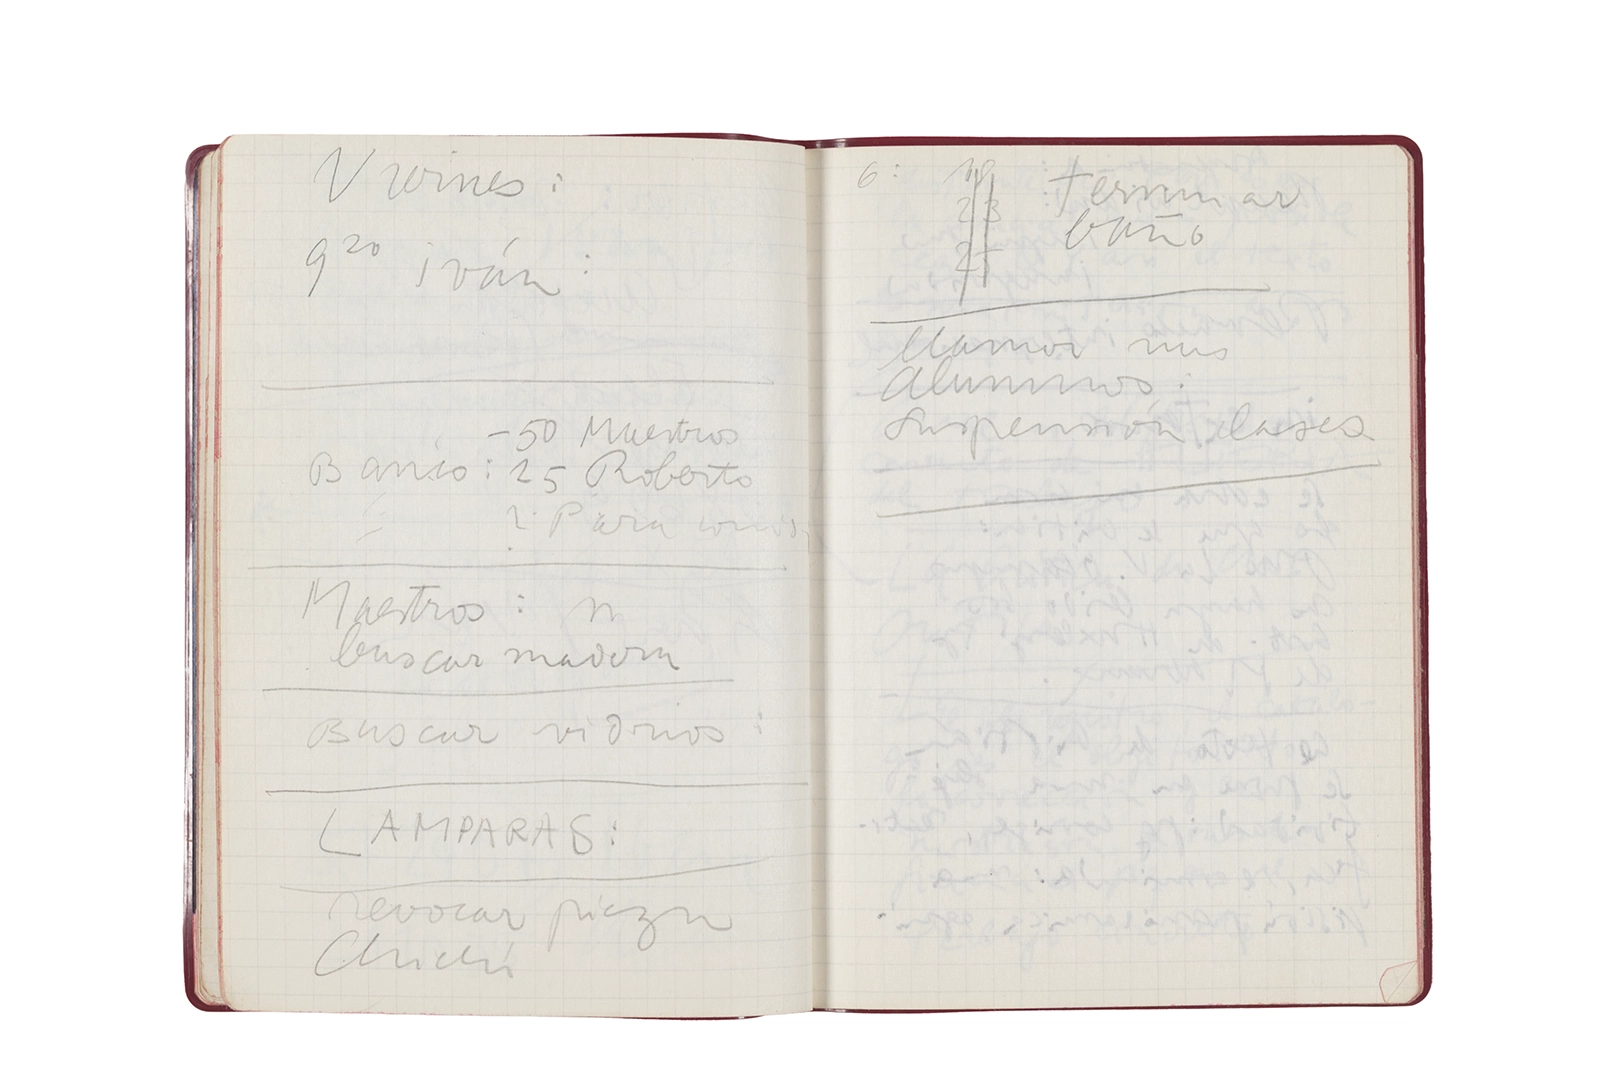 Viernes:
9²⁰ iván:
-50 Maestros
Banco: 25 Roberto
? Para
Maestros:
buscar madera
Buscar vidrios:
LAMPARAS:
revocar pieza
Chichí
6: 19 : terminar
23 baño
25
llamar mis
alumnos:
Suspensión clases